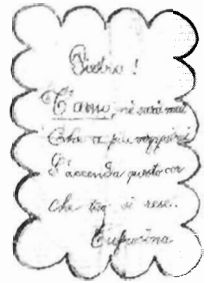 Pietro !
T'amo, nè sarà mai
Che a più
S'accenda questo cor
Che teo si rese..
Eufrosina